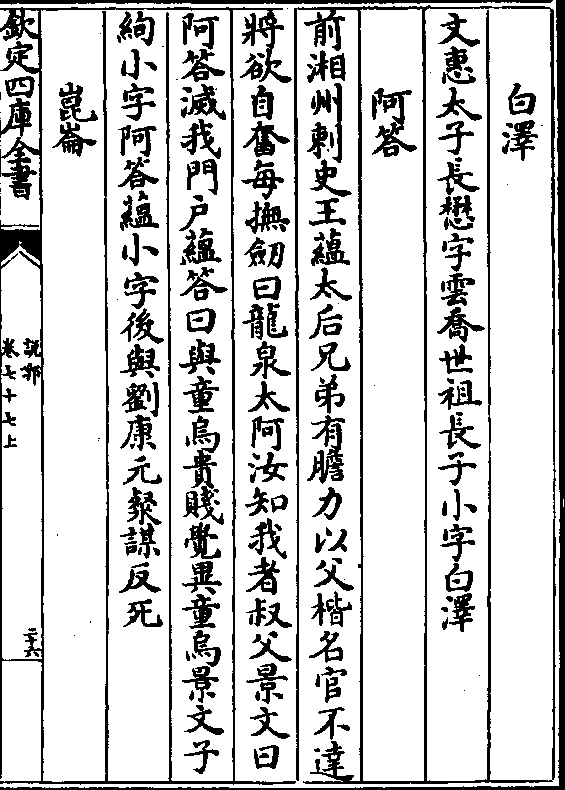 白澤
文惠太子長懋字雲喬世祖長子小字白澤
阿答
前湘州刺史王蘊太后兄弟有膽力以父楷名官不達
將欲自奮每撫劒曰龍泉太阿汝知我者叔父景文曰
阿答滅我門户蘊答曰與童烏貴賤覺異童烏景文子
絢小字阿答蘊小字後與劉康元粲謀反死
崑崙
欽定四庫全書
説郛
卷七十七上
二十六